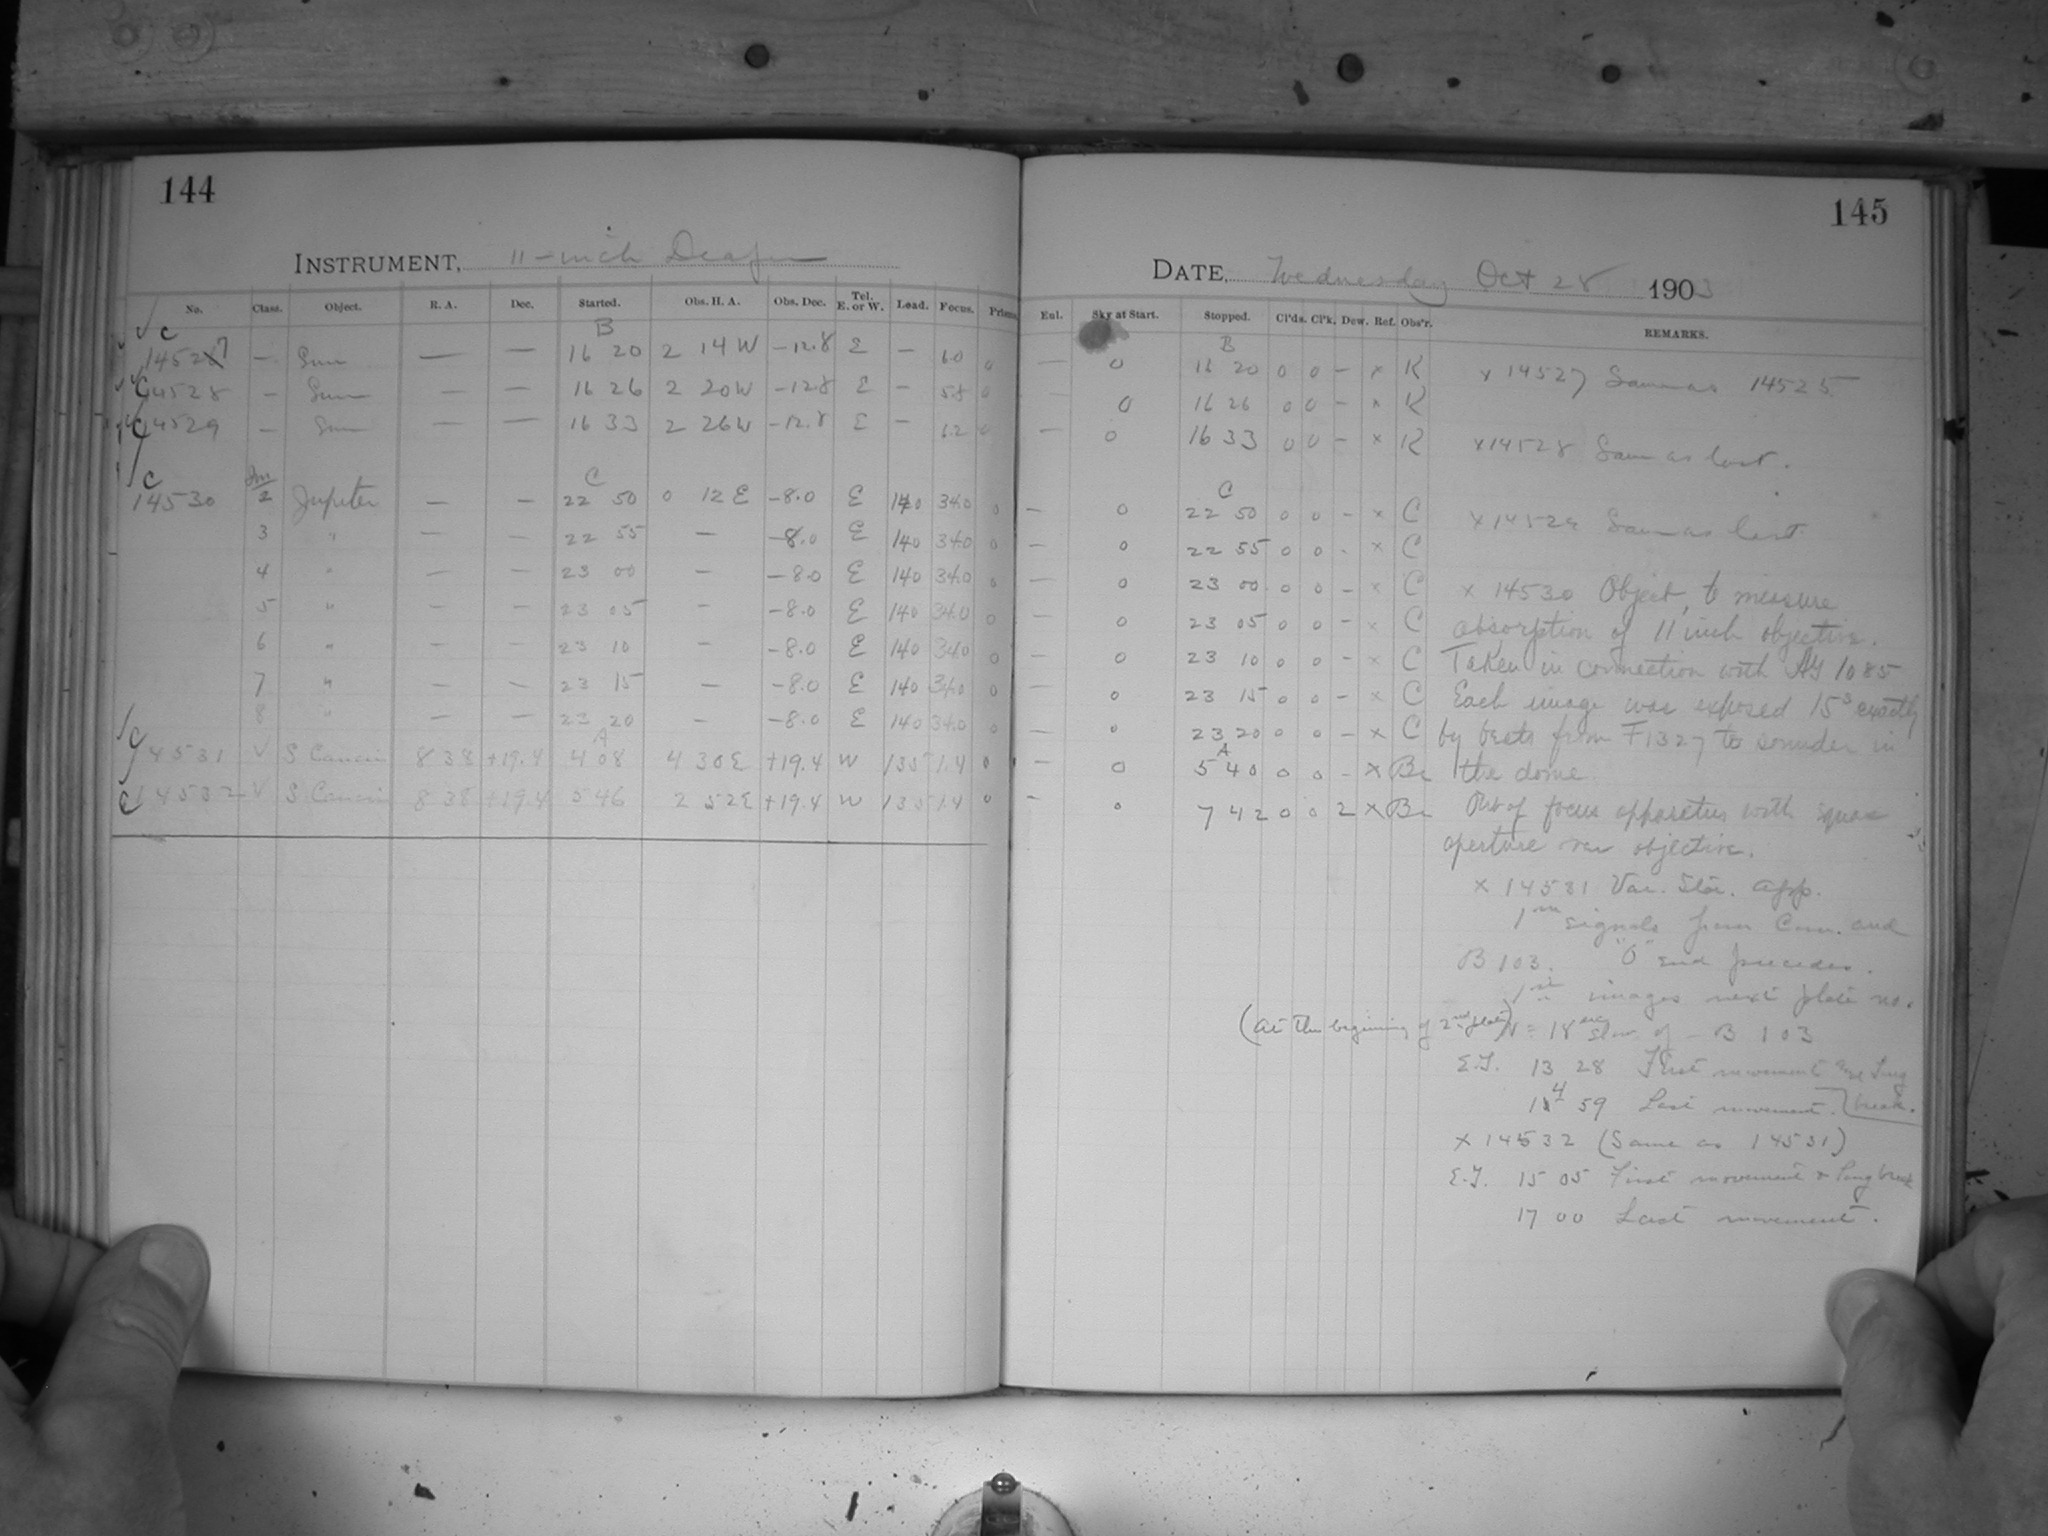 144
INSTRUMENT, 11-inch Draper
No. Class. Object. R. A. Dec. Started. Obs. H. A. Obs. Dec. Tel. E. or W. Load. Focus. Prisms.
B
14527 — Sun — — 16 20 2 14 W -12.8 E — 6.0 0
14528 — Sun — — 16 26 2 20W -12.8 E — 5.8 0
14529 — Sun — — 16 33 2 26W -12.8 E — 6.2 0
C
14530 2 Jupiter — — 22 50 0 12 E -8.0 E 140 34.0 0
3 " — — 22 55 — -8.0 E 140 34.0 0
4 " — — 23 00 — -8.0 E 140 34.0 0
5 " — — 23 05 — -8.0 E 140 34.0 0
6 " — — 23 10 — -8.0 E 140 34.0 0
7 " — — 23 15 — -8.0 E 140 34.0 0
8 " — — 23 20 — -8.0 E 140 34.0 0
A
14531 V S Cancri 8 38 +19.4 4 08 4 30E +19.4 W 135 1.4 0
14532 V S Cancri 8 38 +19.4 5 46 2 52E +19.4 W 135 1.4 0
145
DATE, Wednesday Oct 28 1903
Sky at Start. Stopped. Cl'ds. Cl'k. Dew. Ref. Obs'r. REMARKS.
B
— 0 16 20 0 0 - x K
0 16 26 0 0 - x K
— 0 16 33 0 0 - x K
C
— 0 22 50 0 0 - x C
— 0 22 55 0 0 - x C
— 0 23 00 0 0 - x C
— 0 23 05 0 0 - x C
— 0 23 10 0 0 - x C
— 0 23 15 0 0 - x C
— 0 23 20 0 0 - x C
A
— 0 5 40 0 0 - x Bc
- 0 7 42 0 0 2 x Bc
x 14527 Same as 14525
x 14528 Same as last.
x 14529 Same as last.
x 14530 Object, to measure
absorption of 11 inch objective.
Taken in connection with AY 1085
Each image was exposed 15s exactly
by beats from F1327 to sounder in
the dome.
Out of focus apparatus with square
aperture over objective.
x 14531 Var. Star. App.
1m signals from Com. and
B 103. "0" end precedes.
1st images next plate no.
(At the beginning of 2nd plate) = 18 sec slow of B 103
E.T. 13 28 First movement and long
14 59 Last movement. break.
x 14532 (Same as 14531)
E.T. 15 05 First movement & long break
17 00 Last movement.